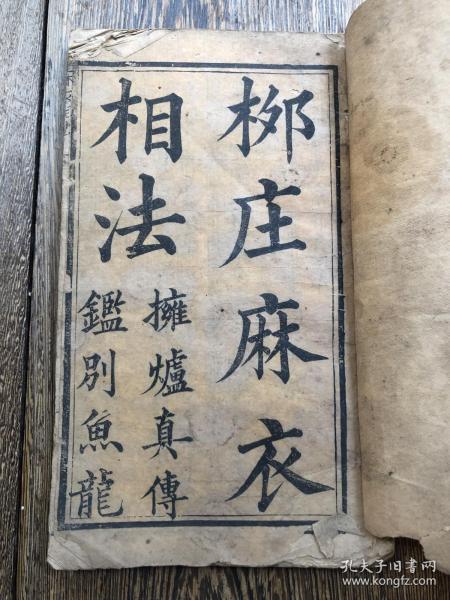 栁庄麻衣
相法
擁爐真傳
鑑別魚龍
孔夫子旧书网
www.kongfz.com